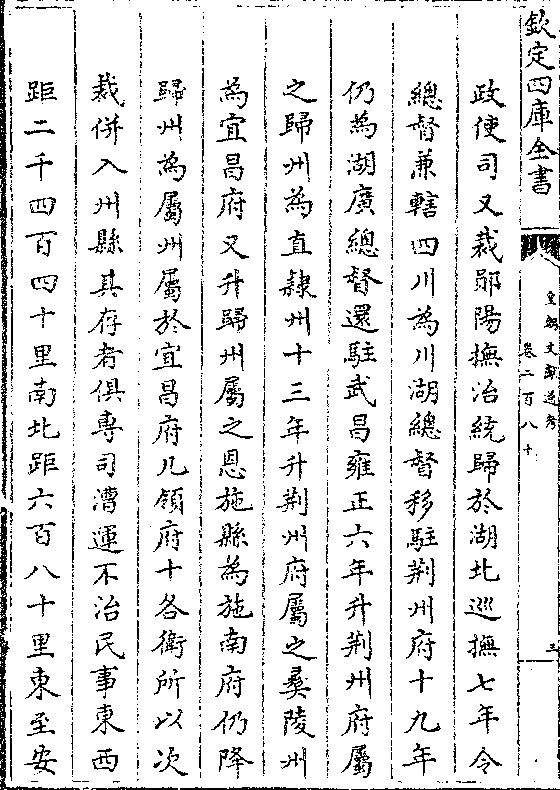 欽定四庫全書
皇朝文獻通考
卷二百八十
政使司又裁鄖陽撫治統歸於湖北巡撫七年令
總督兼轄四川為川湖總督移駐荆州府十九年
仍為湖廣總督還駐武昌雍正六年升荆州府屬
之歸州為直隸州十三年升荆州府屬之彞陵州
為宜昌府又升歸州屬之恩施縣為施南府仍降
歸州為屬州屬於宜昌府凡領府十各衛所以次
裁併入州縣其存者俱專司漕運不治民事東西
距二千四百四十里南北距六百八十里東至安